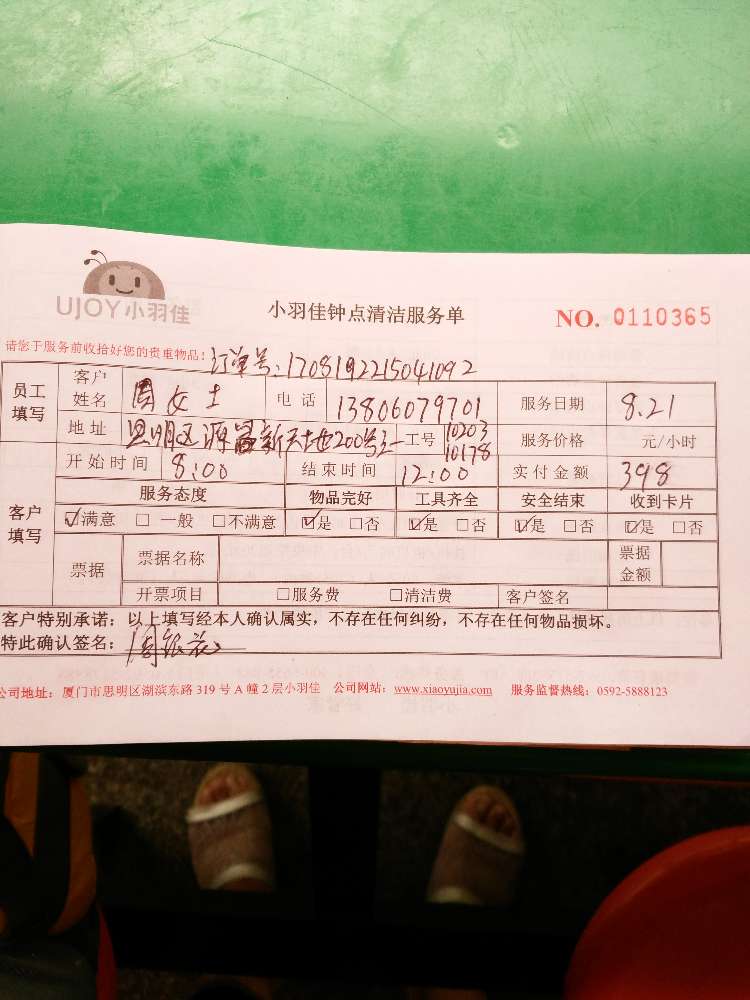 UJOY小羽佳
小羽佳钟点清洁服务单
NO. 0110365
请您于服务前收拾好您的贵重物品!
订单号:1708192215041092
员工填写 客户姓名 周女士 电话 13806079701 服务日期 8.21
地址 思明区源昌新天地200号 工号 10203 10178 服务价格 元/小时
客户填写 开始时间 8:00 结束时间 12:00 实付金额 398
服务态度 物品完好 工具齐全 安全结束 收到卡片
☑满意 □ 一般 □不满意 ☑是 □否 ☑是 □否 ☑是 □否 ☑是 □否
票据 票据名称 票据金额
开票项目 □服务费 □清洁费 客户签名
客户特别承诺:以上填写经本人确认属实,不存在任何纠纷,不存在任何物品损坏。
特此确认签名:周银
公司地址:厦门市思明区湖滨东路 319 号 A 幢 2 层小羽佳 公司网站:www.xiaoyujia.com 服务监督热线:0592-5888123